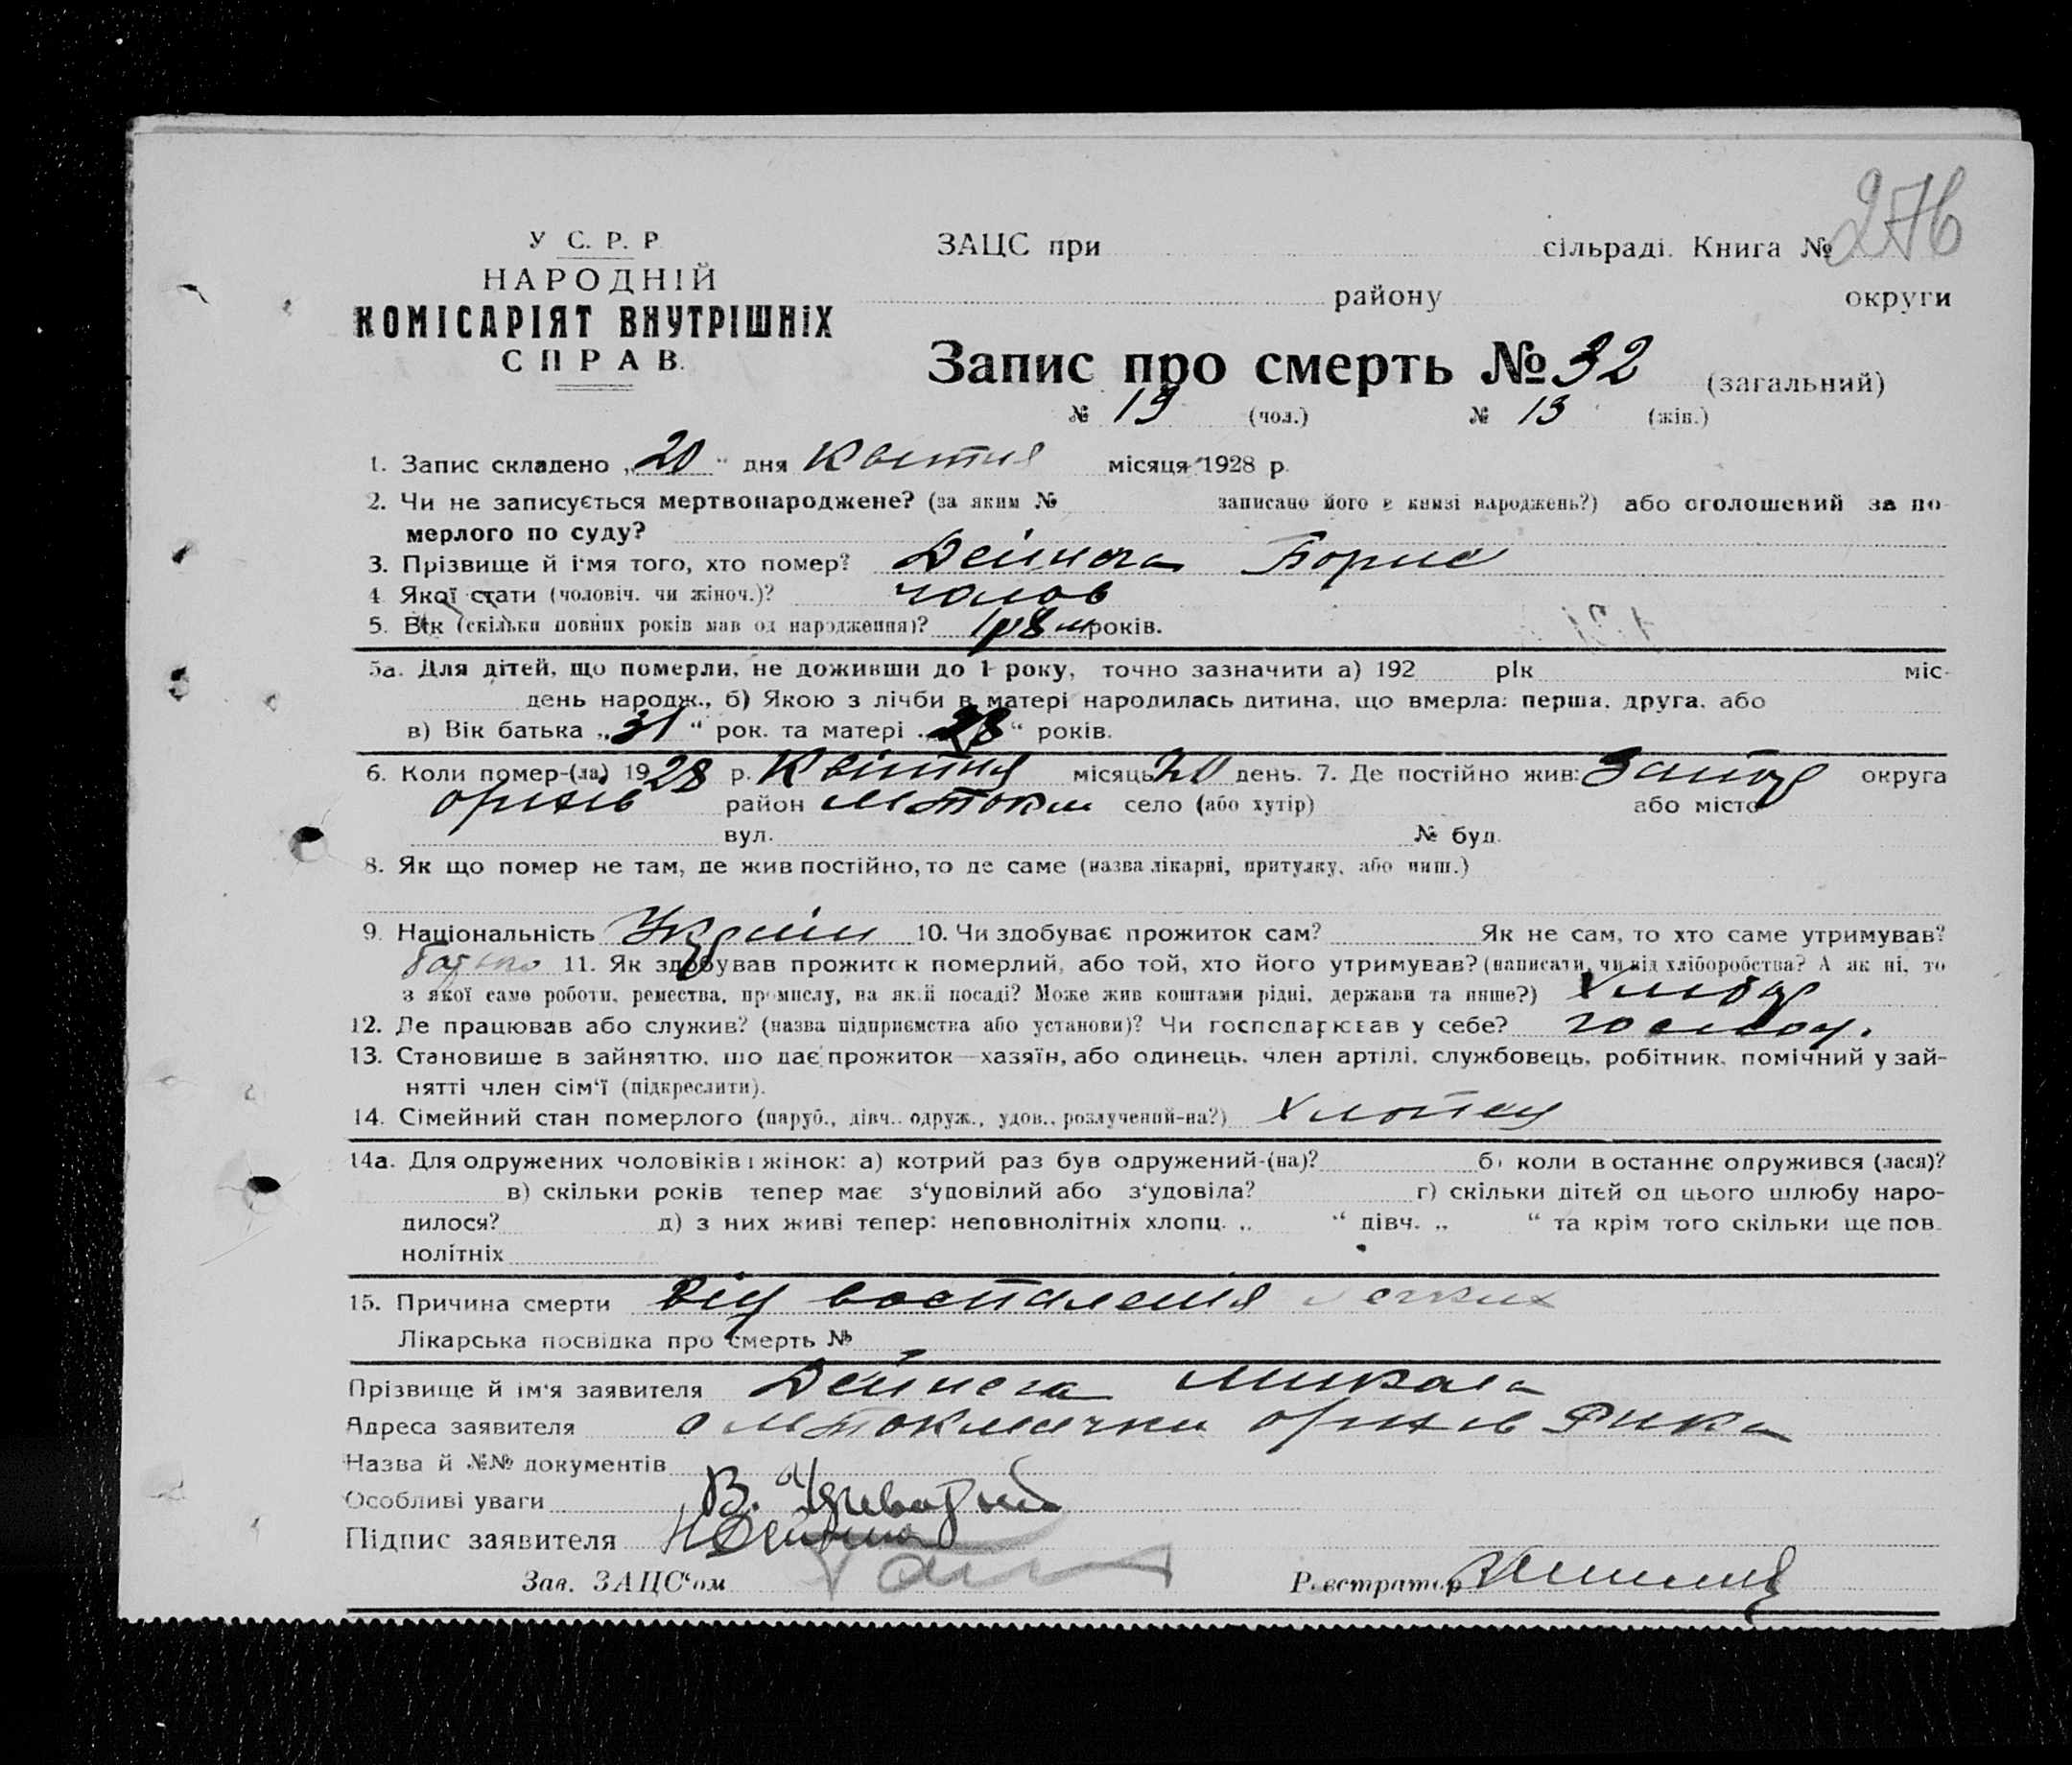 276
У С. Р. Р
НАРОДНІЙ
КОМІСАРІЯТ ВНУТРІШНІХ
СПРАВ.
ЗАЦС при сільраді. Книга №
району округи
Запис про смерть № 32 (загальний)
№ 19 (чол.) № 13 (жін.)
1. Запис складено „20“ дня Квітня місяця 1928 р.
2. Чи не записується мертвонароджене? (за яким № записано його в книзі народжень?) або оголошений за по-
мерлого по суду?
3. Прізвище й і'мя того, хто помер? Дейнега Борис
4 Якої стати (чоловіч. чи жіноч.)? чолов
5. Вік (скільки повних років мав од народження)? 1р 8 м років.
5а. Для дітей, що померли, не доживши до 1 року, точно зазначити а) 192 рік міс-
день народж., б) Якою з лічби в матері народилась дитина, що вмерла: перша, друга, або
в) Вік батька „31“ рок. та матері „28“ років.
6. Коли помер-(ла) 1928 р. Квітня місяць 20 день. 7. Де постійно жив: Запор округа
Оріхів район МТокм село (або хутір) або місто
вул. № буд.
8. Як що помер не там, де жив постійно, то де саме (назва лікарні, притулку, або инш.)
9. Національність Україн 10. Чи здобуває прожиток сам? Як не сам, то хто саме утримував?
батько 11. Як здобував прожиток померлий, або той, хто його утримував? (написати, чи від хліборобства? А як ні, то
з якої саме роботи, ремества, промислу, на якій посаді? Може жив коштами рідні, держави та инше?) Хлібор
12. Де працював або служив? (назва підприємства або установи)? Чи господарював у себе? господ.
13. Становище в зайняттю, що дає прожиток—хазяїн, або одинець, член артілі, службовець, робітник, помічний у зай-
нятті член сім'ї (підкреслити).
14. Сімейний стан померлого (паруб., дівч., одруж., удов., розлучений-на?) Хлопец
14а. Для одружених чоловіків і жінок: а) котрий раз був одружений-(на)? б) коли востаннє одружився (лася)?
в) скільки років тепер має з'удовілий або з'удовіла? г) скільки дітей од цього шлюбу наро-
дилося? д) з них живі тепер: неповнолітніх хлопц. „ “ дівч. „ “ та крім того скільки ще пов-
нолітніх
15. Причина смерти Від воспаления легких
Лікарська посвідка про смерть №
Прізвище й ім'я заявителя Дейнега Микола
Адреса заявителя с МТокмачки Оріхів Рика
Назва й №№ документів
Особливі уваги
Підпис заявителя Н Дейнега
Зав. ЗАЦС'ом Реєстратор